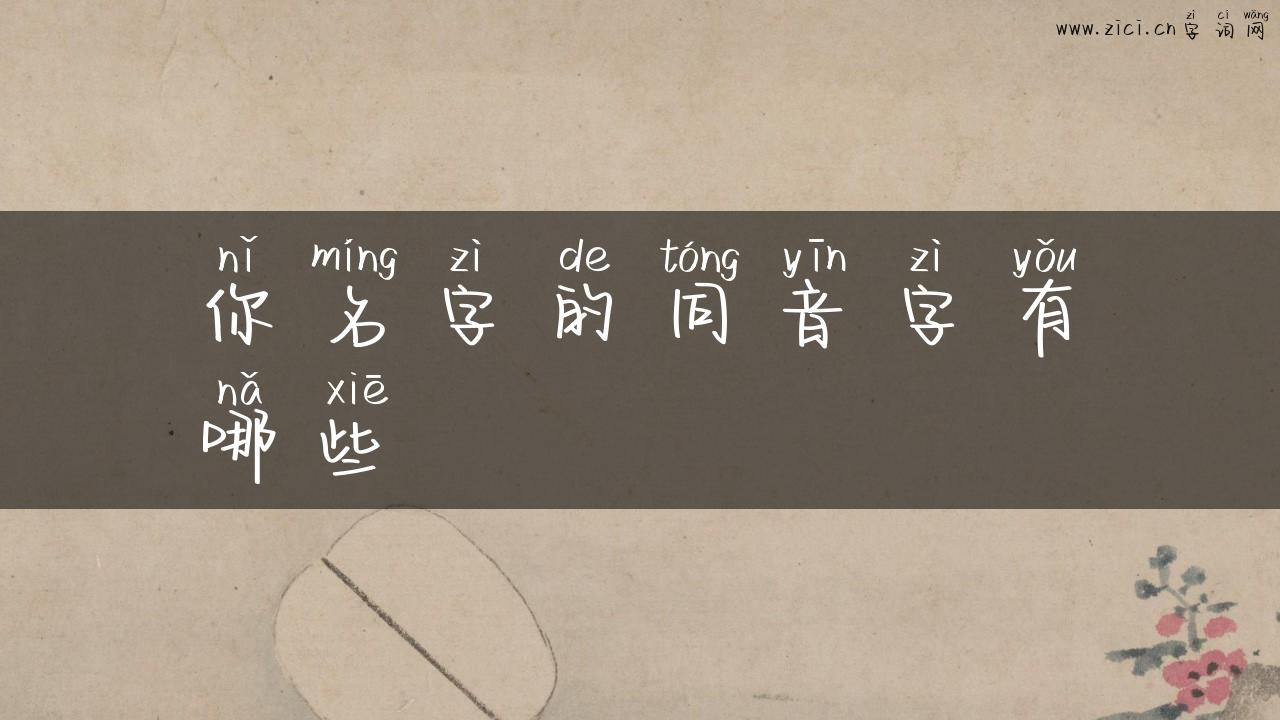 zì cí wǎng
www.zici.cn字词网
nǐ míng zì de tóng yīn zì yǒu
你名字的同音字有
nǎ xiē
哪些